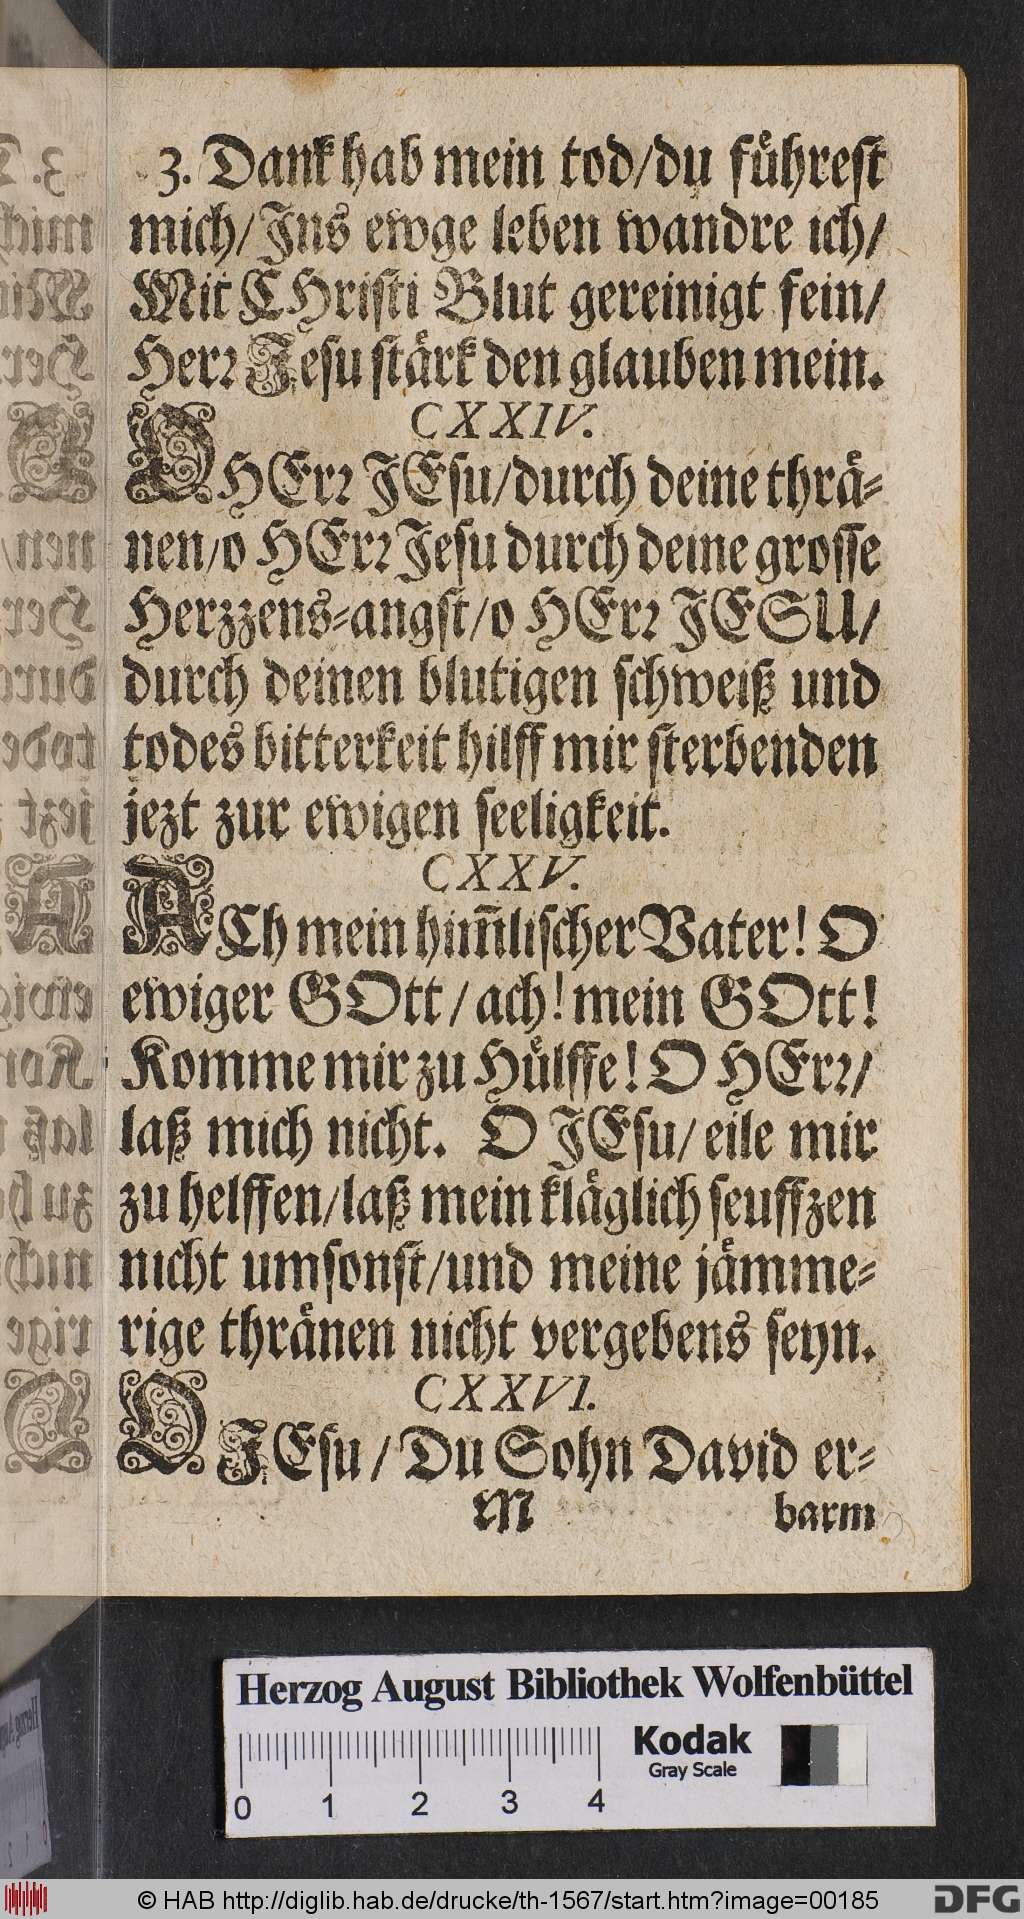 3. Dank hab mein tod/du führest
mich/Ins ewge leben wandre ich/
Mit CHristi Blut gereinigt fein/
Herꝛ Jesu stärk den glauben mein.
CXXIV.
O HErꝛ JEsu/durch deine thrä-
nen/o HErꝛ Jesu durch deine grosse
Herzzens-angst/o HErꝛ JESU/
durch deinen blutigen schweiß und
todes bitterkeit hilff mir sterbenden
jezt zur ewigen seeligkeit.
CXXV.
ACh mein him̃lischer Vater! O
ewiger GOtt/ach! mein GOtt!
Komme mir zu Hülffe! O HErꝛ/
laß mich nicht. O JEsu/eile mir
zu helffen/laß mein kläglich seuffzen
nicht umsonst/und meine jämme-
rige thränen nicht vergebens seyn.
CXXVI.
O JEsu/Du Sohn David er-
M barm
Herzog August Bibliothek Wolfenbüttel
Kodak
Gray Scale
0 1 2 3 4
© HAB http://diglib.hab.de/drucke/th-1567/start.htm?image=00185
DFG